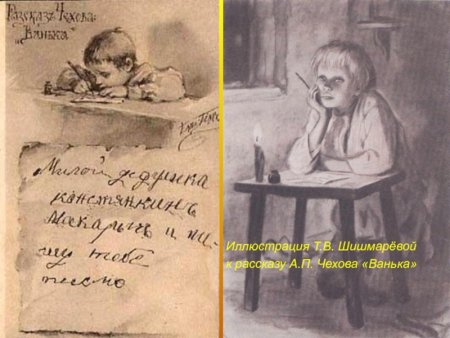 Разсказъ Чехова.
„Ванька"
Милой дедушка
канстянкинъ
Макарычъ и пи-
шу тебе
писмо
Иллюстрация Т.В. Шишмарёвой
к рассказу А.П. Чехова «Ванька»